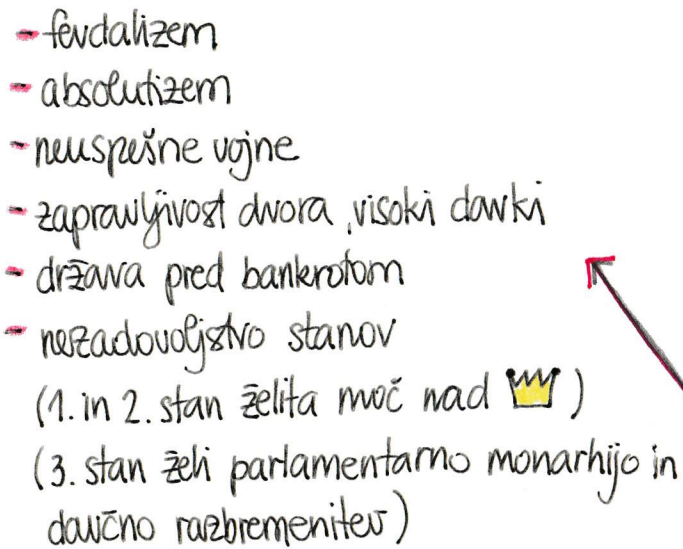 - fevdalizem
- absolutizem
- neuspešne vojne
- zapravljivost dvora, visoki davki
- država pred bankrotom
- nezadovoljstvo stanov
(1. in 2. stan želita moč nad )
(3. stan želi parlamentarno monarhijo in
davčno razbremenitev)